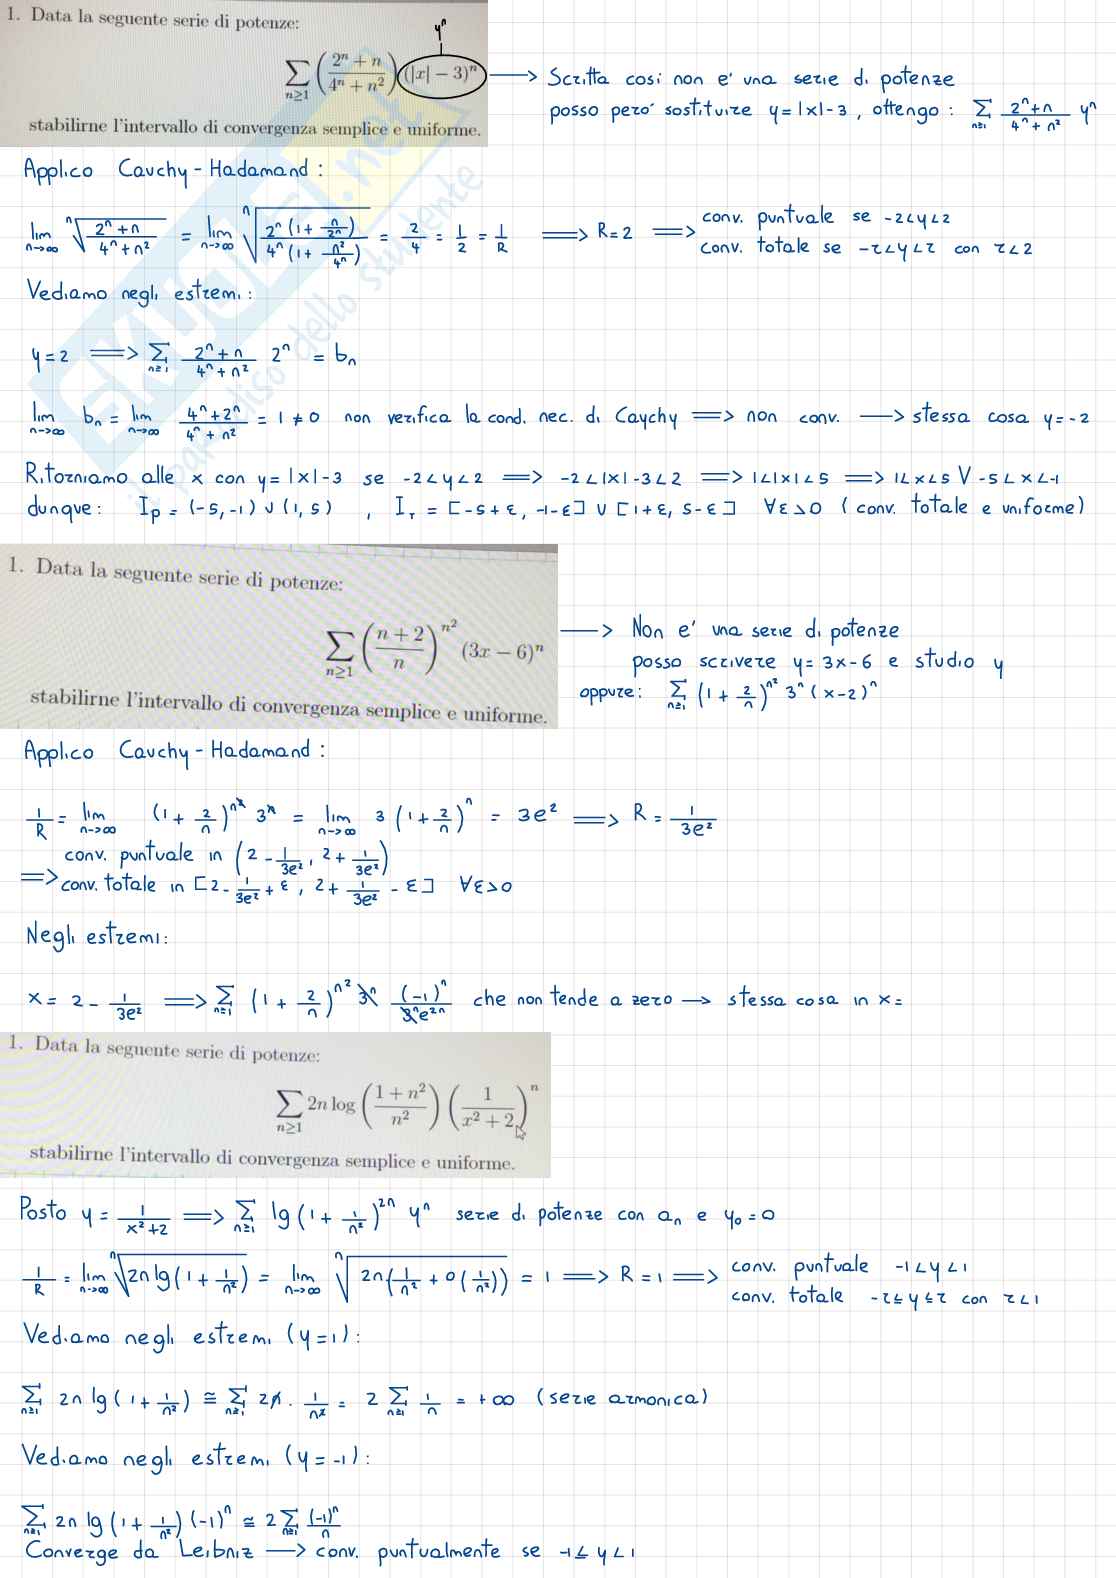 1. Data la seguente serie di potenze:
yⁿ
∑_{n≥1} ((2ⁿ + n)/(4ⁿ + n²)) (|x| − 3)ⁿ → Scritta così non e' una serie di potenze
posso pero' sostituire y = |x| - 3 , ottengo : ∑_{n≥1} (2ⁿ+n)/(4ⁿ + n²) yⁿ
stabilirne l'intervallo di convergenza semplice e uniforme.
Applico Cauchy - Hadamand :
lim_{n→∞} ⁿ√((2ⁿ + n)/(4ⁿ + n²)) = lim_{n→∞} ⁿ√((2ⁿ (1 + n/2ⁿ))/(4ⁿ (1 + n²/4ⁿ))) = 2/4 = 1/2 = 1/R ⟹ R = 2 ⟹ conv. puntuale se -2<y<2
conv. totale se -r<y<r con r<2
Vediamo negli estremi :
y = 2 ⟹ ∑_{n≥1} (2ⁿ + n)/(4ⁿ + n²) 2ⁿ = bₙ
lim_{n→∞} bₙ = lim_{n→∞} (4ⁿ + 2ⁿ)/(4ⁿ + n²) = 1 ≠ 0 non verifica la cond. nec. di Cauchy ⟹ non conv. → stessa cosa y = -2
Ritorniamo alle x con y = |x| - 3 se -2<y<2 ⟹ -2<|x|-3<2 ⟹ 1<|x|<5 ⟹ 1<x<5 V -5<x<-1
dunque : I_P = (-5, -1) ∪ (1, 5) , I_T = [-5+ε, -1-ε] ∪ [1+ε, 5-ε] ∀ε>0 ( conv. totale e uniforme)
1. Data la seguente serie di potenze:
∑_{n≥1} ((n + 2)/n)^{n²} (3x − 6)ⁿ → Non e' una serie di potenze
posso scrivere y = 3x-6 e studio y
oppure : ∑_{n≥1} (1 + 2/n)^{n²} 3ⁿ (x-2)ⁿ
stabilirne l'intervallo di convergenza semplice e uniforme.
Applico Cauchy - Hadamand :
1/R = lim_{n→∞} (1 + 2/n)^{n²} 3ⁿ = lim_{n→∞} 3 (1 + 2/n)ⁿ = 3e² ⟹ R = 1/(3e²)
⟹ conv. puntuale in (2 - 1/(3e²), 2 + 1/(3e²))
conv. totale in [2 - 1/(3e²) + ε , 2 + 1/(3e²) - ε] ∀ε>0
Negli estremi:
x = 2 - 1/(3e²) ⟹ ∑_{n≥1} (1 + 2/n)^{n²} 3ⁿ (-1)ⁿ/(3ⁿe²ⁿ) che non tende a zero → stessa cosa in x =
1. Data la seguente serie di potenze:
∑_{n≥1} 2n log((1 + n²)/n²) (1/(x² + 2))ⁿ
stabilirne l'intervallo di convergenza semplice e uniforme.
Posto y = 1/(x²+2) ⟹ ∑_{n≥1} lg(1 + 1/n²)²ⁿ yⁿ serie di potenze con aₙ e y₀ = 0
1/R = lim_{n→∞} ⁿ√(2n lg(1 + 1/n²)) = lim_{n→∞} ⁿ√(2n(1/n² + o(1/n²))) = 1 ⟹ R = 1 ⟹ conv. puntuale -1<y<1
conv. totale -r≤y≤r con r<1
Vediamo negli estremi (y = 1) :
∑_{n≥1} 2n lg(1 + 1/n²) ≅ ∑_{n≥1} 2n · 1/n² = 2 ∑_{n≥1} 1/n = +∞ (serie armonica)
Vediamo negli estremi (y = -1) :
∑_{n≥1} 2n lg(1 + 1/n²) (-1)ⁿ ≅ 2 ∑_{n≥1} (-1)ⁿ/n
Converge da Leibniz → conv. puntualmente se -1≤y<1
SKUOLA.net
il paradiso dello studente